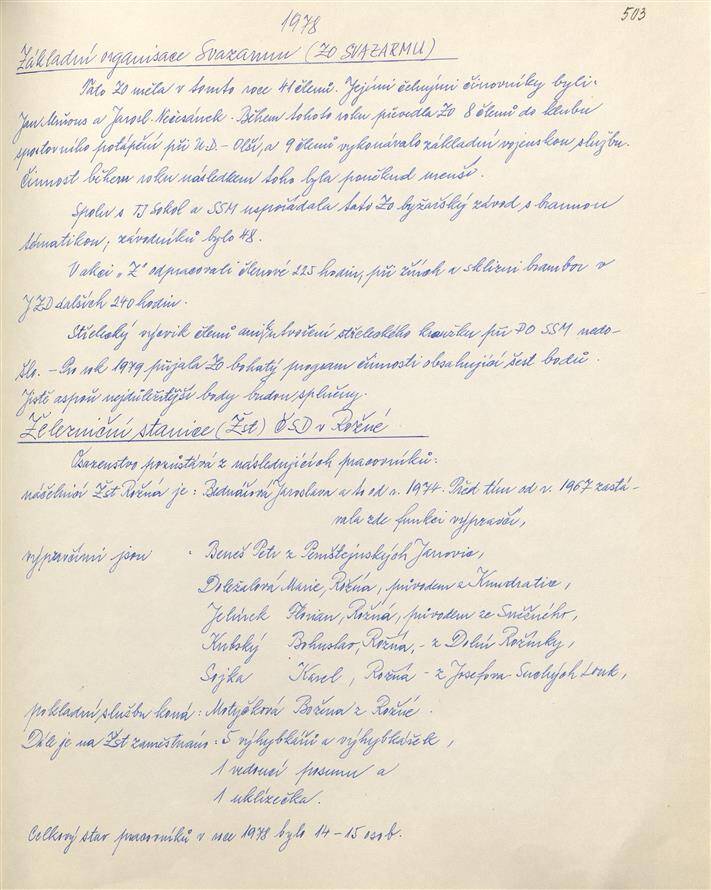 503
1978
Základní organisace Svazarmu (ZO SVAZARMU)
Tato ZO měla v tomto roce 41 členů. Jejími čelnými činovníky byli:
Jan a Jarosl. Něčesánek. Během tohoto roku převedla ZO 8 členů do klubu
sportovního potápění při U.D. - Olší, a 9 členů vykonávalo základní vojenskou službu.
Činnost během roku následkem toho byla poněkud menší.
Spolu s TJ Sokol a SSM uspořádala tato ZO lyžařský závod s brannou
tématikou; závodníků bylo 48.
V akci "Z" odpracovali členové 225 hodin, při žních a sklizni brambor v
JZD dalších 240 hodin.
Střelecký výcvik členů ani k utvoření střeleckého kroužku při PO SSM nedo-
šlo. - Pro rok 1979 přijala ZO bohatý program činnosti obsahující šest bodů.
Jistě aspoň nejdůležitější body budou splněny.
Železniční stanice (Žst) ČSD v Rožné
Osazenstvo pozůstává z následujících pracovníků:
náčelnicí Žst Rožná je: Bednářová Jaroslava a to od r. 1974. Před tím od r. 1967 zastá-
vala zde funkci výpravčí,
výpravčími jsou : Beneš Petr z Pernštejnských Janovic,
Doležalová Marie, Rožná, původem z Kundratic,
Jelínek Florian, Rožná, původem ze Sněžného,
Kubský Bohuslav, Rožná, - z Dolní Rožínky,
Sojka Karel, Rožná - z Josefova-Suchých Louk,
pokladní službu koná: Motyčková Božena z Rožné.
Dále je na Žst zaměstnáno: 5 výhybkářů a výhybkářek,
1 vedoucí posunu a
1 uklízečka.
Celkový stav pracovníků v roce 1978 bylo 14-15 osob.